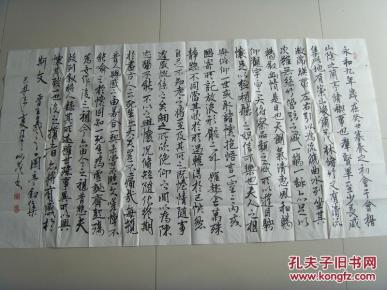 永和九年歲在癸丑暮春之初會于會稽
山陰之蘭亭修禊事也群賢畢至少長咸
集此地有崇山峻領茂林修竹又有清流
激湍暎帶左右引以為流觴曲水列坐其
次雖無絲竹管弦之盛一觴一詠亦足以
暢敘幽情是日也天朗氣清惠風和暢
仰觀宇宙之大俯察品類之盛所以遊目騁
懷足以極視聽之娛信可樂也夫人之相
與俯仰一世或取諸懷抱悟言一室之內或
因寄所託放浪形骸之外雖趣舍萬殊
靜躁不同當其欣於所遇暫得於己快然
自足不知老之將至及其所之既惓情隨事
遷感慨係之矣向之所欣俛仰之間以為陳
跡猶不能不以之興懷況修短隨化終期
於盡古人云死生亦大矣豈不痛哉每攬
昔人興感之由若合一契未嘗不臨文嗟悼不
能喻之於懷固知一死生為虛誕齊彭殤
為妄作後之視今亦由今之視昔悲夫
故列敘時人錄其所述雖世殊事異所以興
懷其致一也後之攬者亦將有感於
斯文
孔夫子旧书网